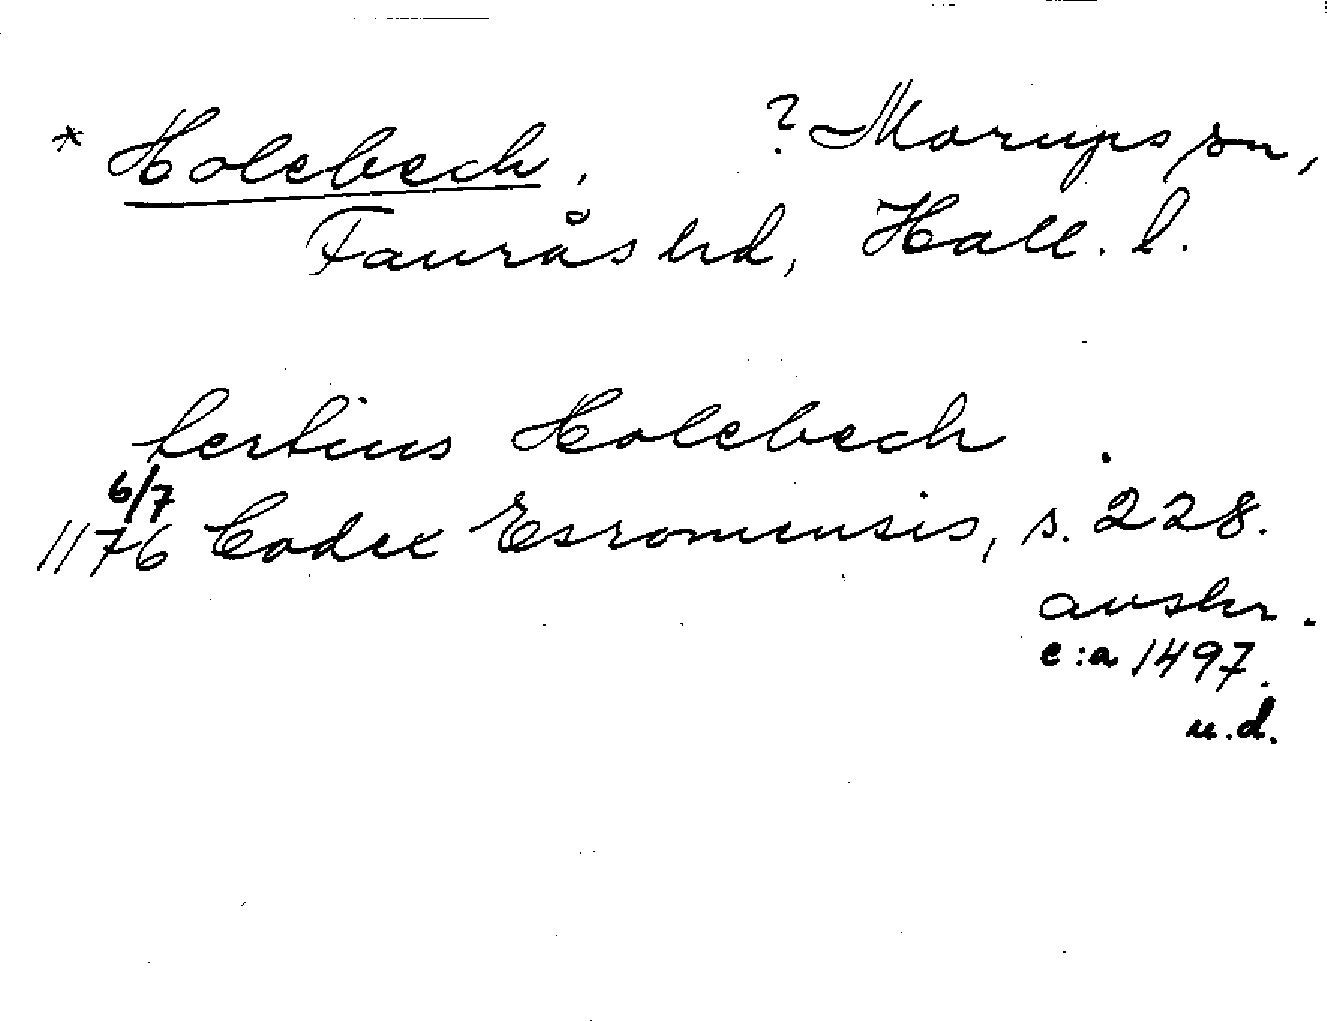 * Holebech, ? Morups sn,
Faurås hd, Hall. l.
tertius Holebech .
6/7
1176 Codex Esromensis, s. 228.
avskr.
c:a 1497.
u.d.